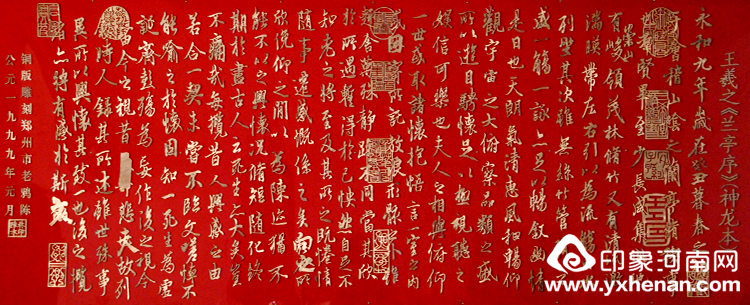 王羲之《兰亭序》(神龙本)
永和九年歲在癸丑暮春之初
會稽山陰之蘭亭
群賢畢至少長咸集
崇山
有峻領茂林脩竹又有清流
湍暎帶左右引以為流觴
列坐其次雖無絲竹管
盛一觴一詠亦足以暢敘幽情
是日也天朗氣清惠風和暢仰
觀宇宙之大俯察品類之盛
所以遊目騁懷足以極視聽之
娛信可樂也夫人之相與俯仰
一世或取諸懷抱悟言一室之內
或因寄所託放浪形骸之外雖
趣舍萬殊靜躁不同當其欣
於所遇蹔得於己怏然自足不
知老之將至及其所之既惓情
隨事遷感慨係之矣向之所
欣俛仰之閒以為陳跡猶不
能不以之興懷況脩短隨化終
期於盡古人云死生亦大矣豈
不痛哉每攬昔人興感之由
若合一契未嘗不臨文嗟悼不
能喻之於懷固知一死生為虛
誕齊彭殤為妄作後之視今
今之視昔悲夫故列
敘時人錄其所述雖世殊事
異所以興懷其致一也後之攬
者亦將有感於斯文
铜版雕刻郑州市老鸦陈
公元一九九九年元月
印象河南网
www.yxhenan.com